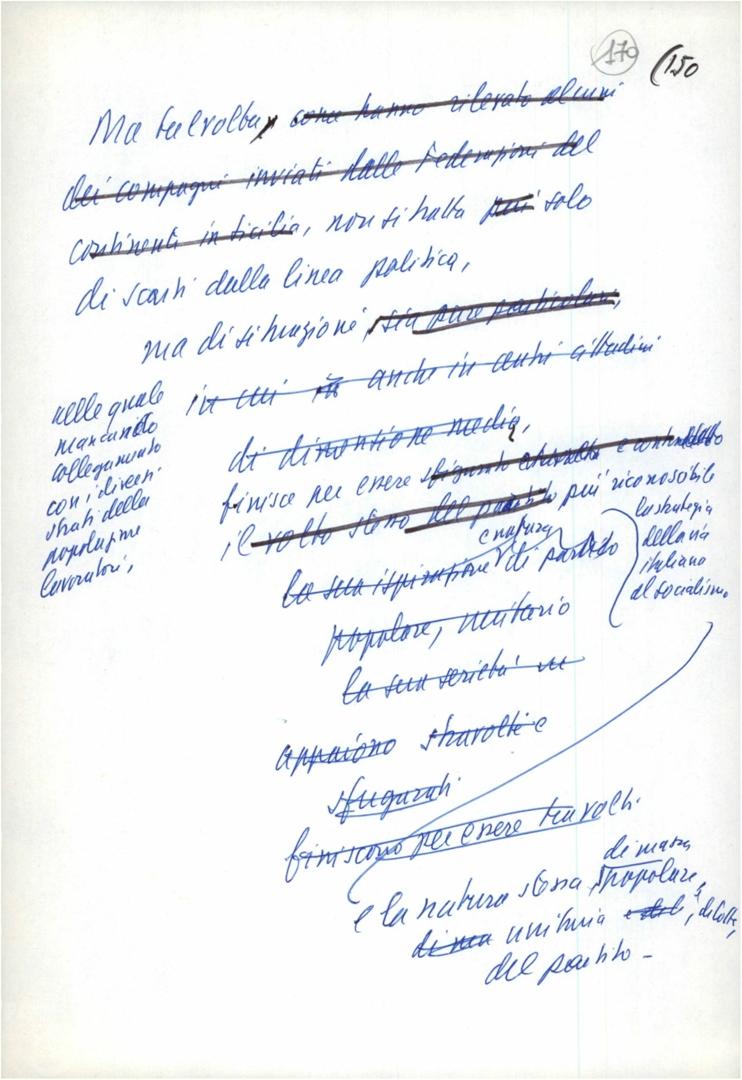 170 (150
Ma talvolta, come hanno rilevato alcuni
dei compagni inviati dalle Federazioni del
continenti in Sicilia, non si tratta più solo
di scarti dalla linea politica,
ma di situazioni, sia pure particolari,
nelle quale
mancando
collegamento
con i diversi
strati della
popolazione
lavoratori,
in cui anche in centri cittadini
di dimensione media,
finisce per essere sfigurato e
il volto stesso del partito più riconoscibile
la strategia
della via
italiana
al socialismo
e natura
la sua ispirazione di partito
popolare, unitario
la sua serietà
appaiono stravolti e
sfigurati
finiscono per essere travolti.
e la natura stessa, di massa
popolare,
unitaria e di lotta,
del partito -